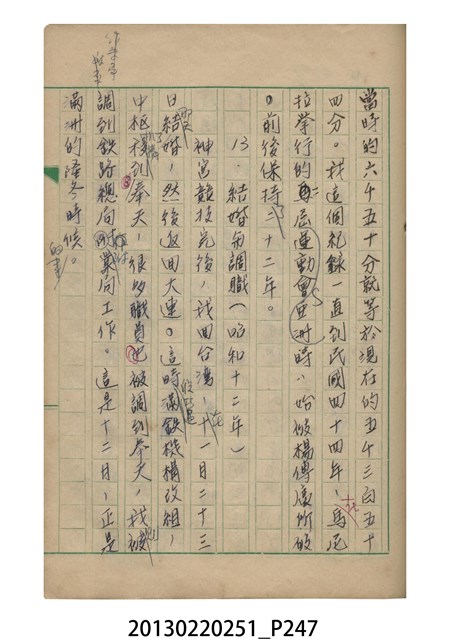 當時的六千五十分就等於現在的五千三百五十
四分。我這個紀錄一直到民國四十四年，在馬尼
拉舉行的亞洲運動會時，始被楊傳廣所破
。前後保持了二十二年。
13. 結婚與調職（昭和十二年）
神宮競技完後，我回台灣，在十一月二十三
日結婚，然後返回大連。這時滿鉄機構改組，
中枢移到奉天，很多職員被調到奉天，我被
調到鉄路總局附業局工作。這是十二月，正是
滿洲的隆冬時候。
的事
20130220251_P247